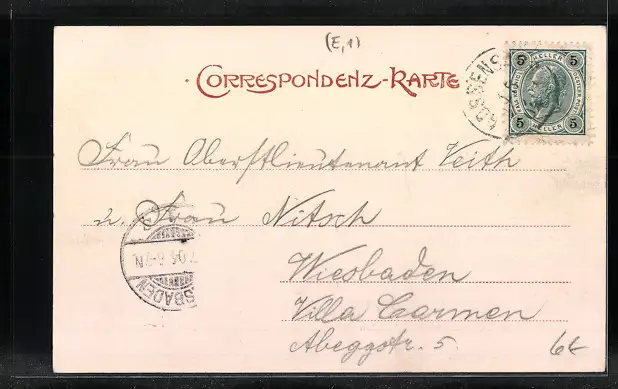 (E,1)
CORRESPONDENZ-KARTE
GOSSENS
5 HELLER 5
5 HELLER 5
Frau Oberstlieutenant Veith
u. Frau Nitsch
Wiesbaden
Villa Carmen
Abeggstr. 5
SBADEN
7.04.6-7N.